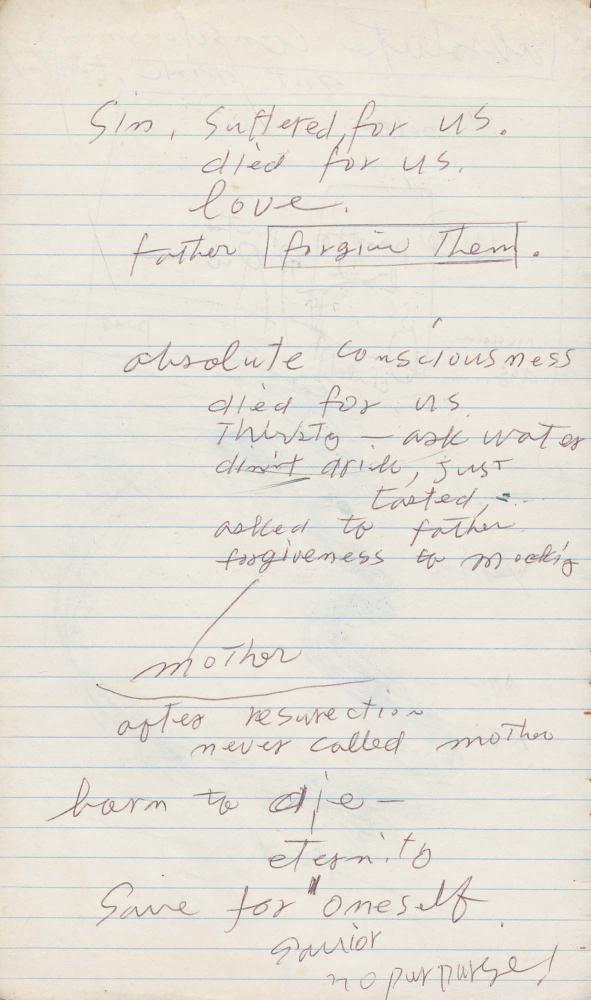 Sin, suffered, for us.
died for us.
love.
Father forgive Them.
absolute consciousness
died for us.
Thirsty - ask water
din't drink, just
tasted,
asked to father
forgiveness to mockig
mother
after resurection
never called mother
born to die -
eternity
Save for oneself
savior
no purpurses